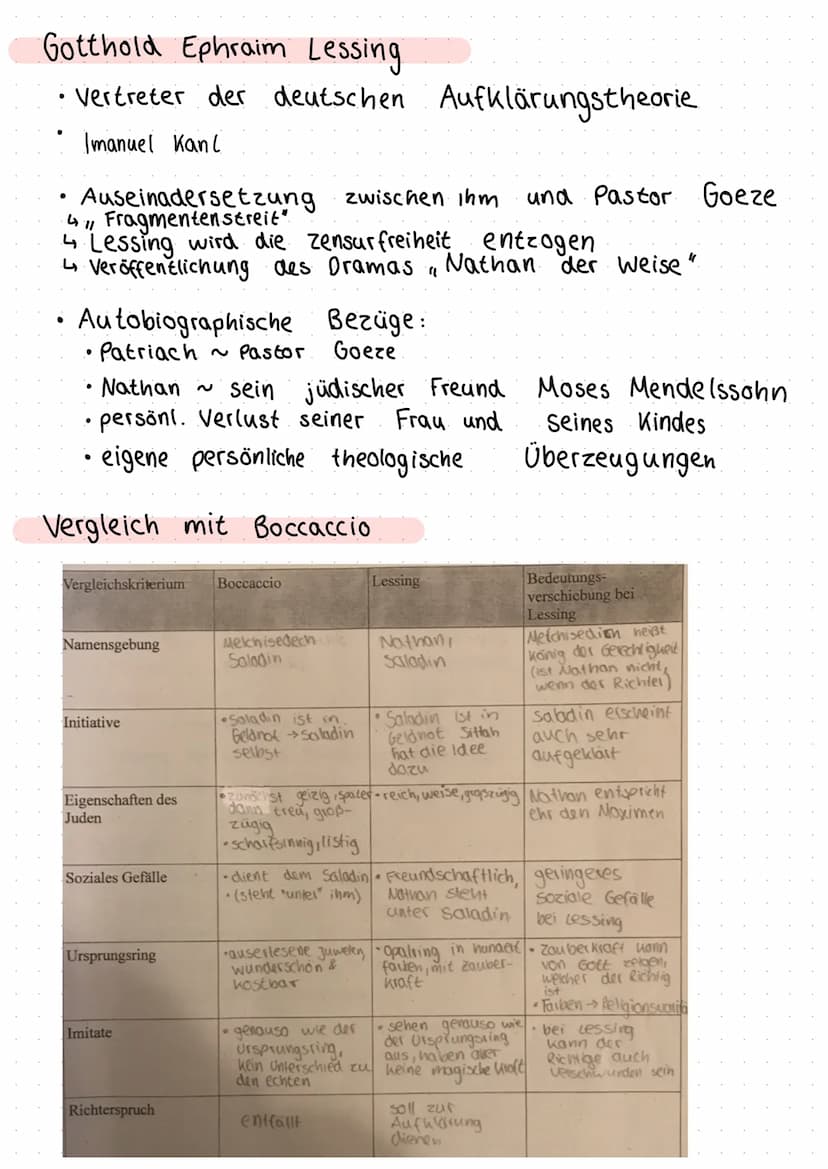 Gotthold Ephraim Lessing
• Vertreter der deutschen Aufklärungstheorie
• Imanuel Kant
• Auseinadersetzung zwischen ihm und Pastor Goeze
↳ „Fragmentenstreit"
↳ Lessing wird die Zensurfreiheit entzogen
↳ Veröffentlichung des Dramas „Nathan der Weise"
• Autobiographische Bezüge:
• Patriach ~ Pastor Goeze
• Nathan ~ sein jüdischer Freund Moses Mendelssohn
• persönl. Verlust seiner Frau und seines Kindes
• eigene persönliche theologische Überzeugungen
Vergleich mit Boccaccio
Vergleichskriterium
Boccaccio
Lessing
Bedeutungs-
verschiebung bei
Lessing
Namensgebung
Melchisedech
Saladin
Nathan,
Saladin
Melchisedich heißt
König der Gerechtigkeit
(ist Nathan nicht,
wenn der Richter)
Initiative
• Saladin ist in
Geldnot → Saladin
selbst
• Saladin ist in
Geldnot Sittah
hat die Idee
dazu
Saladin erscheint
auch sehr
aufgeklärt
Eigenschaften des
Juden
• zunächst geizig, später
dann treu, groß-
zügig
• scharfsinnig, listig
• reich, weise, großzügig
Nathan entspricht
ehr den Maximen
Soziales Gefälle
• dient dem Saladin
• (steht "unter" ihm)
• Freundschaftlich,
Nathan steht
unter Saladin
geringeres
soziale Gefälle
bei Lessing
Ursprungsring
• auserlesene Juwelen,
wunderschön &
kostbar
• Opalring in hundert
farben, mit zauber-
kraft
• Zauberkraft kann
von Gott zeigen,
welcher der Richtig
ist
• Farben →
Imitate
• genauso wie der
Ursprungsring,
kein Unterschied zu
den echten
• sehen genauso wie
der Ursprungsring
aus, haben aber
keine magische Kraft
• bei Lessing
kann der
Richtige auch
verschwunden sein
Richterspruch
entfällt
soll zur
Aufklärung
dienen